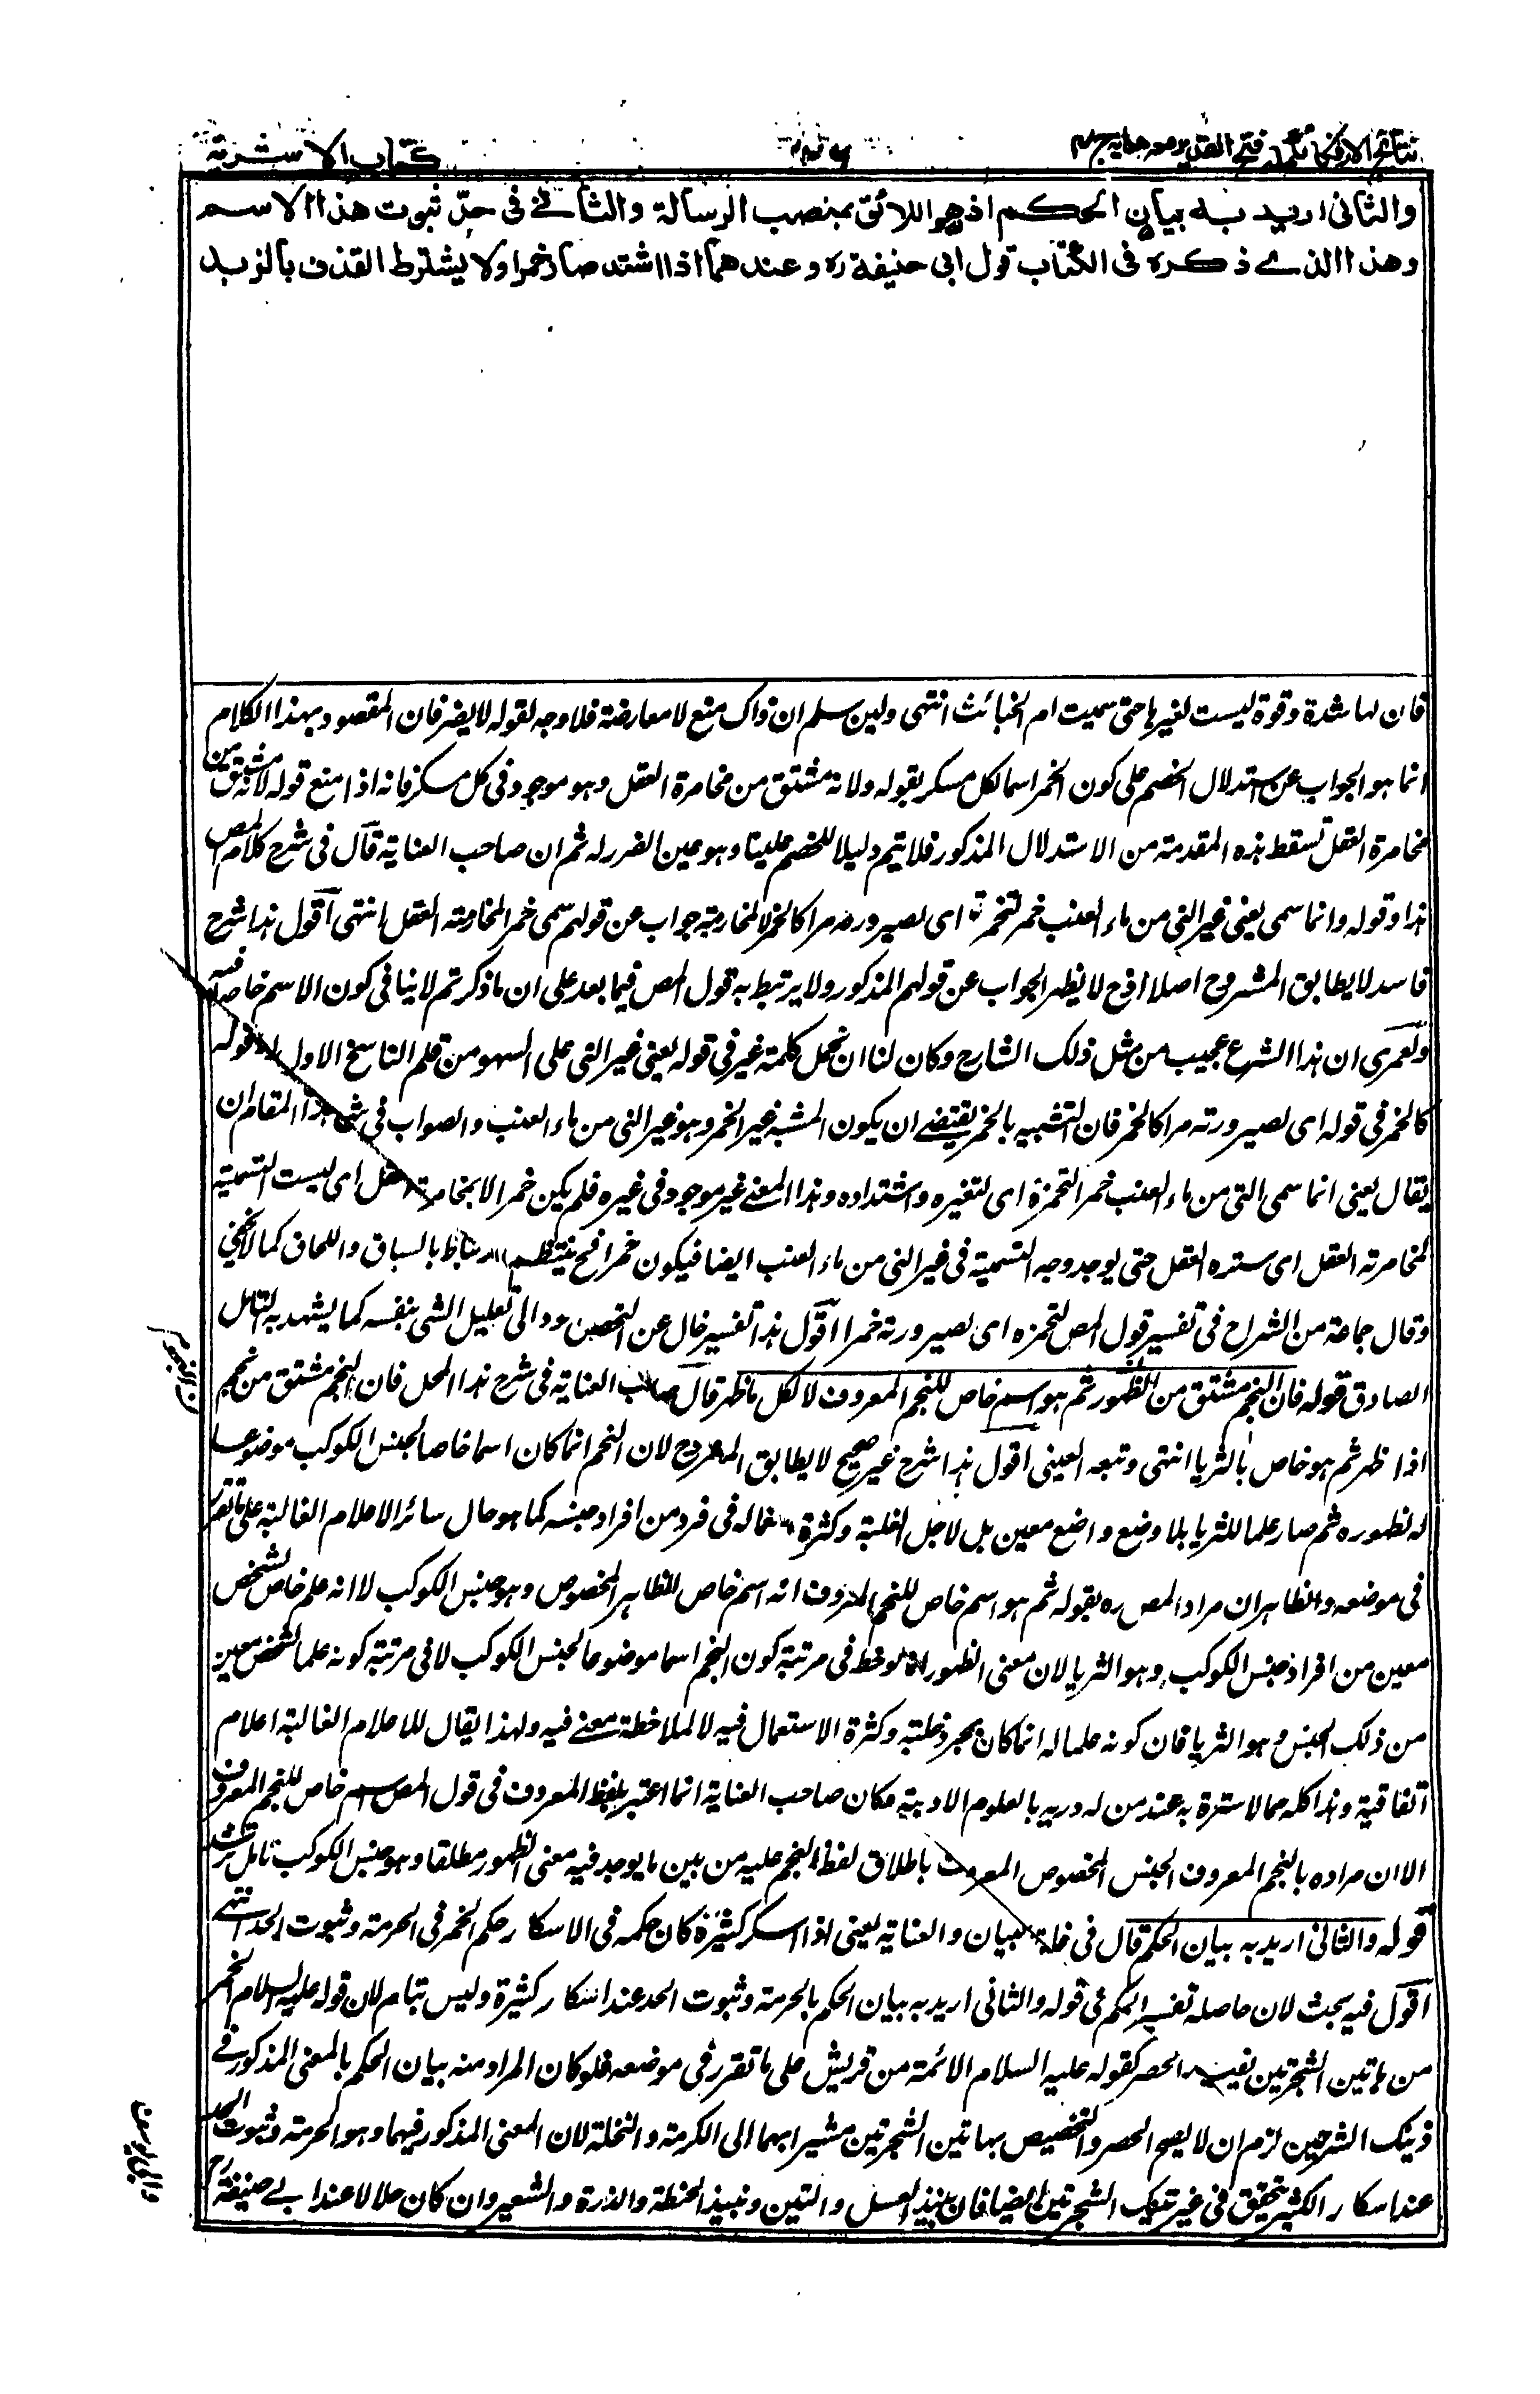 نتائج الافكار تكملة فتح القدير مع هداية ج٤
كتاب الاشربة
والثانى اريد به بيان الحكم اذ هو اللائق بمنصب الرسالة والثالث فى حد ثبوت هذا الاسم
وهذا الذے ذكره فى الكتاب قول ابى حنيفة ره وعندهما اذا اشتد صار خمرا ولا يشترط القذف بالزبد
فان لها شدة وقوة ليست لغيرها حتى سميت ام الخبائث انتهى ولئن سلم ان ذاك منع لا معارضة فلا وجه لقوله لا يضر فان المقصود بهذا الكلام
انما هو الجواب عن استدلال الخصم على كون الخمر اسما لكل مسكر بقوله ولانه مشتق من مخامرة العقل وهو موجود فى كل مسكر فانه اذا منع قوله لانه مشتق من
مخامرة العقل تسقط هذه المقدمة من الاستدلال المذكور فلا يتم دليلا للخصم علينا وهو عين الضرر له ثم ان صاحب العناية قال فى شرح كلام المص
هذا وقوله وانما سمى يعنى غير النى من ماء العنب خمر لتخمره اى لصيرورته مرا كالخمر لا لمخامرته جواب عن قولهم سمى خمر المخامرته العقل انتهى اقول هذا شرح
فاسد لا يطابق المشروح اصلا اذ ح لا يظهر الجواب عن قولهم المذكور ولا يرتبط به قول المص فيما بعد على ان ما ذكرتم لا ينافى كون الاسم خاصا فيه
ولعمرى ان هذا الشرح عجيب من مثل ذلك الشارح وكان لنا ان نحمل كلمة غير فى قوله يعنى غير النى على السهو من قلم الناسخ الاول لولا قوله
كالخمر فى قوله اى لصيرورته مرا كالخمر فان التشبيه بالخمر يقتضے ان يكون المشبه غير الخمر وهو غير النى من ماء العنب والصواب فى شرح هذا المقام ان
يقال يعنى انما سمى النى من ماء العنب خمر التخمره اى لتغيره واشتداده وهذا المعنے غير موجود فى غيره فلم يكن خمرا لا لمخامرة العقل اى ليست التسمية
لمخامرته العقل اى ستره العقل حتى يوجد وجه التسمية فى غير النى من ماء العنب ايضا فيكون خمرا فح ينتظم بالسباق واللحاق كما لا يخفى
وقال جماعة من الشراح فى تفسير قول المص لتخمره اى لصيرورته خمرا اقول هذا تفسير خال عن التحصيل مود الى تعليل الشى بنفسه كما يشهد به التامل
الصادق قوله فان النجم مشتق من الظهور ثم هو اسم خاص للنجم المعروف لا لكل ما ظهر قال صاحب العناية فى شرح هذا المحل فان النجم مشتق من نجم
اذا ظهر ثم هو خاص بالثريا انتهى وتبعه العينى اقول هذا شرح غير صحيح لا يطابق المشروح لان النجم انما كان اسما خاصا لجنس الكوكب موضوعا
له لظهوره ثم صار علما للثريا بلا وضع واضع معين بل لاجل الغلبة وكثرة استعماله فى فرد من افراد جنسه كما هو حال سائر الاعلام الغالبة على ما تقرر
فى موضعه والظاهر ان مراد المص ره بقوله ثم هو اسم خاص للنجم المعروف انه اسم خاص للظاهر المخصوص وهو جنس الكوكب لا انه علم خاص لشخص
معين من افراد جنس الكوكب وهو الثريا لان معنى الظهور انما لوحظ فى مرتبة كون النجم اسما موضوعا لجنس الكوكب لا فى مرتبة كونه علما لشخص معين
من ذلك الجنس وهو الثريا فان كونه علما له انما كان بمجرد غلبته وكثرة الاستعمال فيه لا لملاحظة معنے فيه ولهذا يقال للاعلام الغالبة اعلام
اتفاقية وهذا كله مما لا سترة به عند من له دربة بالعلوم الادبية فكان صاحب العناية انما اعتبر بلفظ المعروف فى قول المص اسم خاص للنجم المعروف
الا ان مراده بالنجم المعروف الجنس المخصوص المعروف باطلاق لفظ النجم عليه من بين ما يوجد فيه معنى الظهور مطلقا وهو جنس الكوكب تامل ترشد
قوله والثانى اريد به بيان الحكم قال فى غاية البيان والعناية يعنى اذا اسكر كثيره كان حكمه فى الاسكار حكم الخمر فى الحرمة وثبوت الحد انتهے
اقول فيه بحث لان حاصله تفسير الحكم فى قوله والثانى اريد به بيان الحكم بالحرمة وثبوت الحد عند اسكار كثيره وليس بتام لان قوله عليه السلام الخمر
من هاتين الشجرتين يفيد الحصر كقوله عليه السلام الائمة من قريش على ما تقرر فى موضعه فلو كان المراد منه بيان الحكم بالمعنى المذكور فے
ذينك الشرحين لزم ان لا يصح الحصر والتخصيص بهاتين الشجرتين مشيرا بهما الى الكرمة والنخلة لان المعنى المذكور فيهما وهو الحرمة وثبوت الحد
عند اسكار الكثير تحقق فى غير تينك الشجرتين ايضا فان نبيذ العسل والتين ونبيذ الحنطة والذرة والشعير وان كان حلالا عند ابے حنيفة رح